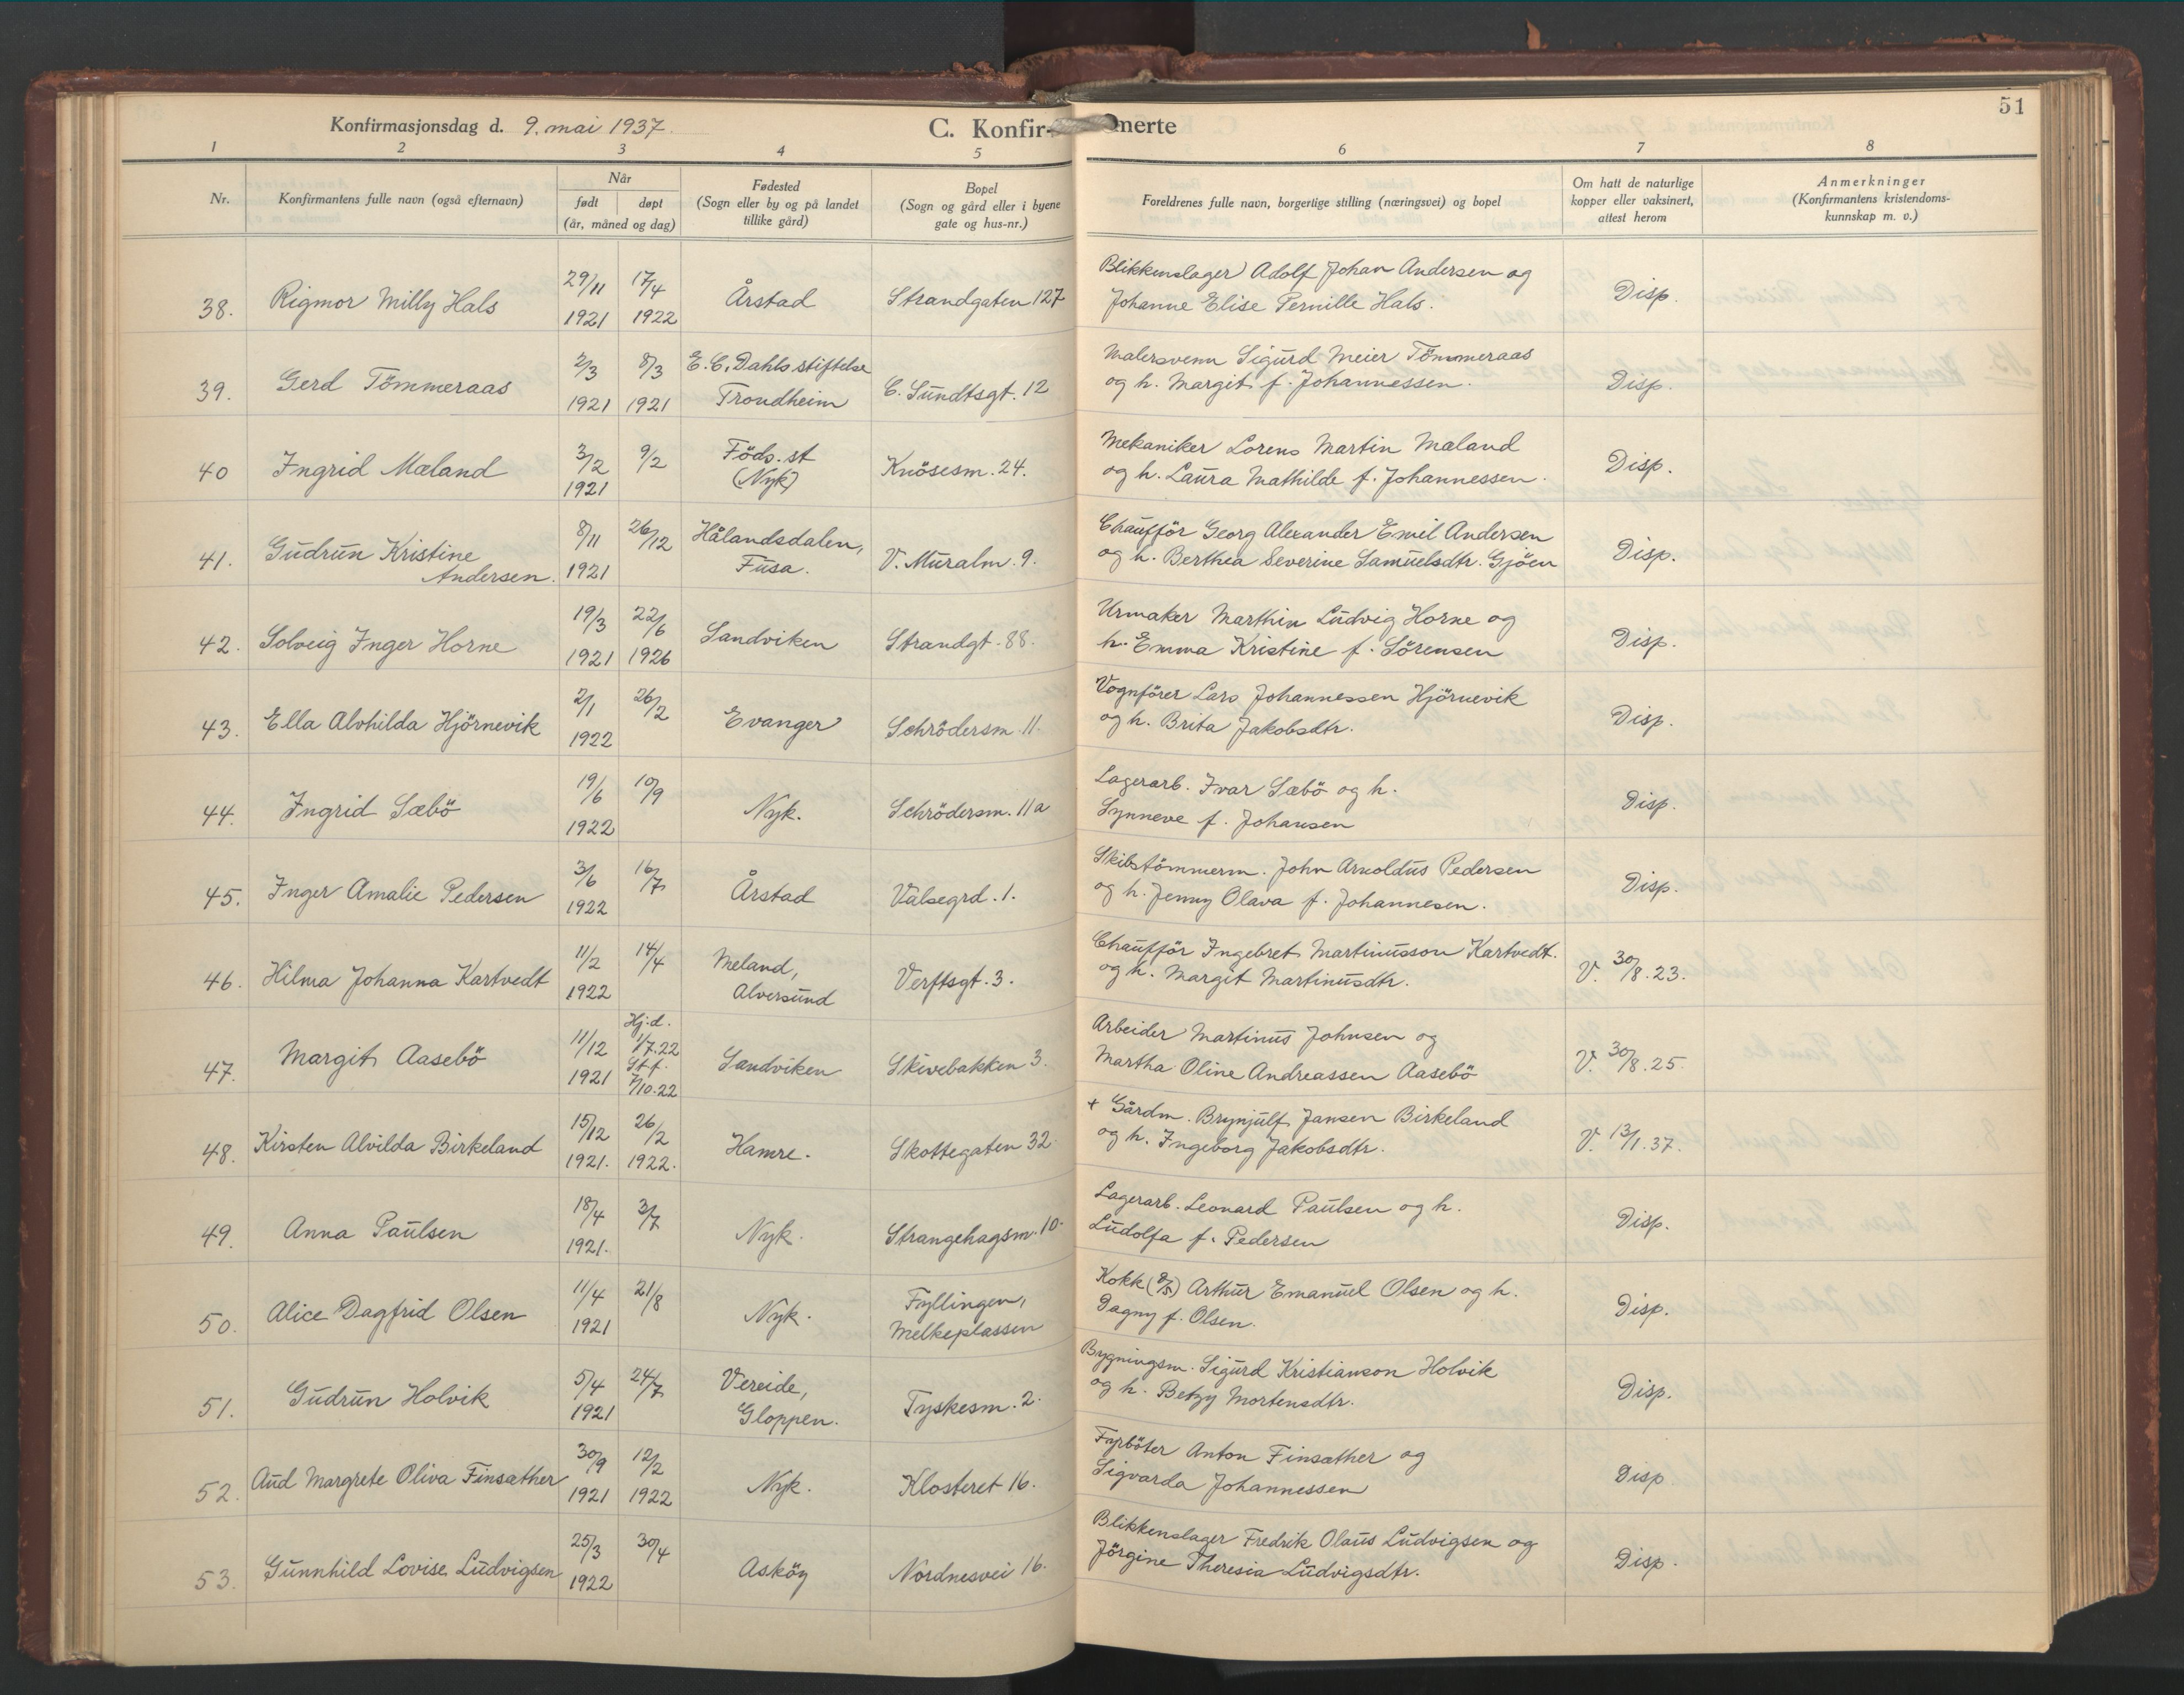 51
Konfirmasjonsdag d. 9. mai 1937.
C. Konfir- merte
1 2 3 4 5 6 7 8
Nr.
Konfirmantens fulle navn (også efternavn)
Når
født døpt
(år, måned og dag)
Fødested
(Sogn eller by og på landet
tillike gård)
Bopel
(Sogn og gård eller i byene
gate og hus-nr.)
Foreldrenes fulle navn, borgerlige stilling (næringsvei) og bopel
Om hatt de naturlige
kopper eller vaksinert,
attest herom
Anmerkninger
(Konfirmantens kristendoms-
kunnskap m. v.)
38. Rigmor Milly Hals
29/11 1921
17/4 1922
Årstad
Strandgaten 127
Blikkenslager Adolf Johan Andersen og
Johanne Elise Pernille Hals.
Disp.
39. Gerd Tömmeraas
2/3 1921
8/3 1921
E. C. Dahls stiftelse
Trondheim
C. Sundtsgt. 12
Malersvenn Sigurd Meier Tömmeraas
og h. Margit f. Johannessen.
Disp.
40 Ingrid Mæland
3/2 1921
9/2
Föds. st
(Nyk)
Knösesm. 24.
Mekaniker Lorens Martin Mæland
og h. Laura Mathilde f. Johannessen.
Disp.
41. Gudrun Kristine
Andersen.
8/11 1921
26/12
Hålandsdalen,
Fusa.
V. Muralm. 9.
Chaufför Georg Alexander Emil Andersen
og h. Berthea Severine Samuelsdtr. Gjöen
Disp.
42. Solveig Inger Horne
19/3 1921
22/6 1926
Sandviken
Strandgt. 88.
Urmaker Marthin Ludvig Horne og
h. Emma Kristine f. Sörensen
Disp.
43. Ella Alvhilda Hjörnevik
2/1 1922
26/2
Evanger
Schrödersm. 11.
Vognförer Lars Johannessen Hjörnevik
og h. Brita Jakobsdtr.
Disp.
44. Ingrid Sæbö
19/6 1922
10/9
Nyk.
Schrödersm. 11a
Lagerarb. Ivar Sæbö og h.
Synneve f. Johansen
Disp.
45. Inger Amalie Pedersen
3/6 1922
16/7
Årstad
Valsegrd. 1.
Skibstömmerm. John Arnoldus Pedersen
og h. Jenny Olava f. Johannesen.
Disp.
46. Hilma Johanna Kartvedt
11/2 1922
14/4
Meland,
Alversund
Verftsgt. 3.
Chaufför Ingebret Martinusson Kartvedt.
og h. Margit Martinusdtr.
V. 30/8. 23.
47. Margit Aasebö
11/12 1921
Hj.d.
1/7.22
St. f.
7/10.22
Sandviken
Skivebakken 3.
Arbeider Martinus Johnsen og
Martha Oline Andreassen Aasebö
V. 30/8. 25.
48. Kirsten Alvilda Birkeland
15/12 1921.
26/2 1922.
Hamre.
Skottegaten 32
+ Gårdm. Brynjulf Jansen Birkeland
og h. Ingeborg Jakobsdtr.
V. 13/1. 37.
49. Anna Paulsen
18/4 1921.
3/7
Nyk.
Strangehagsm. 10.
Lagerarb. Leonard Paulsen og h.
Ludolfa f. Pedersen
Disp.
50. Alice Dagfrid Olsen
11/4 1921
21/8
Nyk.
Fyllingen,
Melkeplassen
Kokk (D/S) Arthur Emanuel Olsen og h.
Dagny f. Olsen.
Disp.
51. Gudrun Holvik
5/4 1921
24/7
Vereide,
Gloppen.
Tyskesm. 2.
Bygningsm. Sigurd Kristianson Holvik
og h. Betzy Mortensdtr.
Disp.
52. Aud Margrete Oliva Finsæther
30/9 1921
12/2 1922
Nyk.
Klosteret 16.
Fyrböter Anton Finsæther og
Sigvarda Johannessen
Disp
53. Gunnhild Lovise Ludvigsen
25/3 1922
30/4
Asköy
Nordnesvei 16.
Blikkenslager Fredrik Olaus Ludvigsen og
Jörgine Theresia Ludvigsdtr.
Disp.